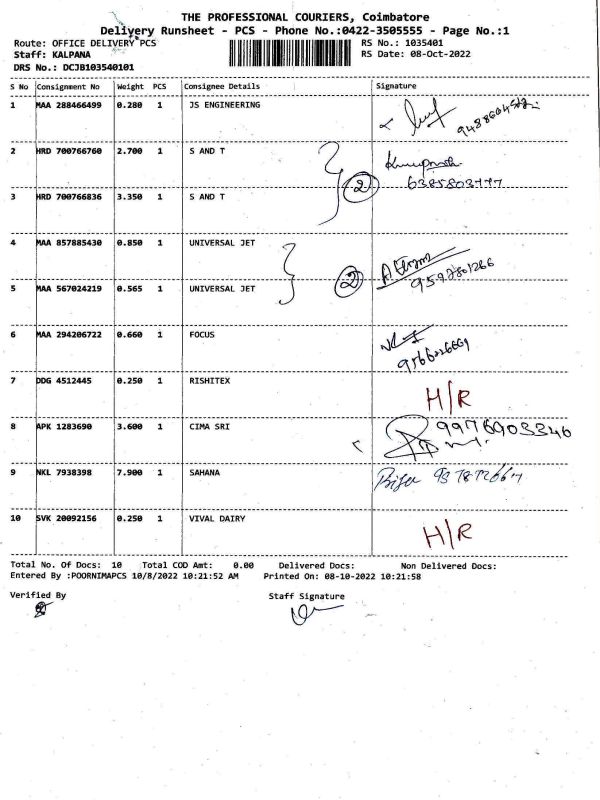 THE PROFESSIONAL COURIERS, Coimbatore
Delivery Runsheet - PCS - Phone No.:0422-3505555 - Page No.:1
Route: OFFICE DELIVERY PCS
RS No.: 1035401
Staff: KALPANA
RS Date: 08-Oct-2022
DRS No.: DCJB103540101
S No Consignment No Weight PCS Consignee Details Signature
1 MAA 288466499 0.280 1 JS ENGINEERING
2 HRD 700766760 2.700 1 S AND T
2 6385803777
3 HRD 700766836 3.350 1 S AND T
4 MAA 857885430 0.850 1 UNIVERSAL JET
2
5 MAA 567024219 0.565 1 UNIVERSAL JET
6 MAA 294206722 0.660 1 FOCUS
7 DDG 4512445 0.250 1 RISHITEX
H/R
8 APK 1283690 3.600 1 CIMA SRI 9976903346
9 NKL 7938398 7.900 1 SAHANA
10 SVK 20092156 0.250 1 VIVAL DAIRY
H/R
Total No. Of Docs: 10 Total COD Amt: 0.00 Delivered Docs: Non Delivered Docs:
Entered By :POORNIMAPCS 10/8/2022 10:21:52 AM Printed On: 08-10-2022 10:21:58
Verified By Staff Signature